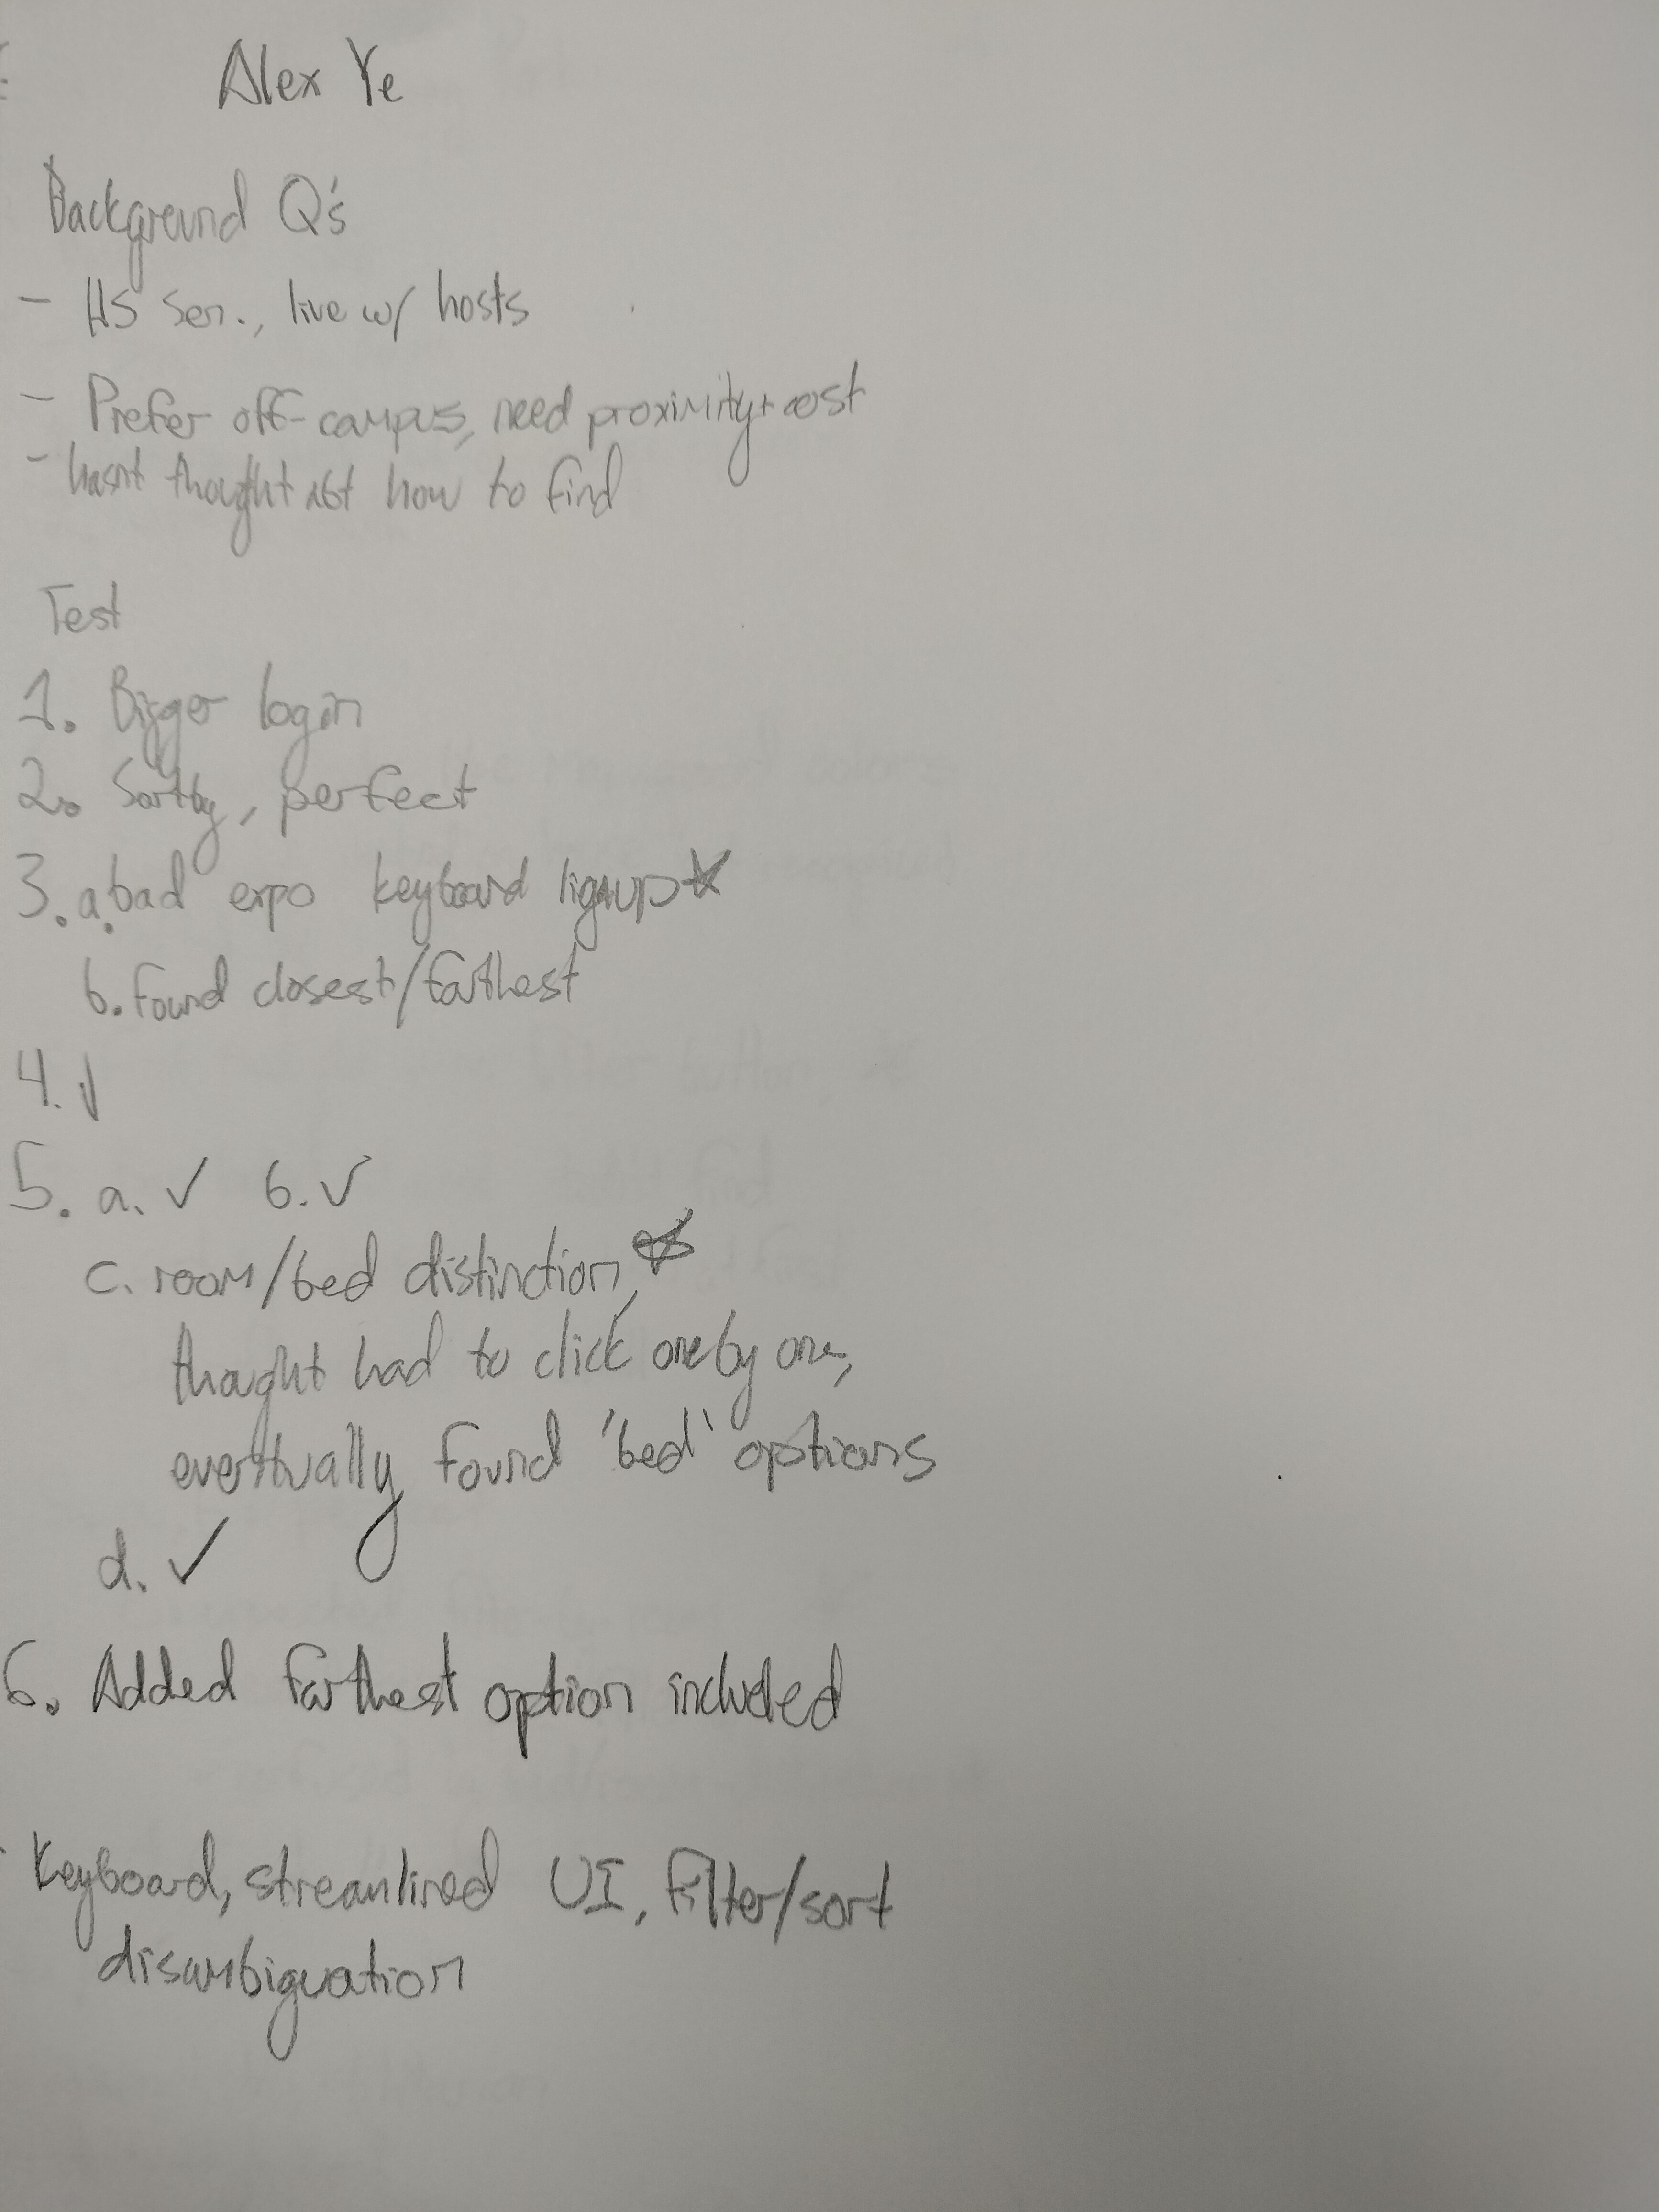 Alex Ye
Background Q's
- HS Sen., live w/ hosts
- Prefer off-campus, need proximity + cost
- hasn't thought abt how to find
Test
1. Bigger login
2. Sortby, perfect
3. a. bad expo keyboard lignup ☆
b. Found closest/farthest
4. ✓
5. a. ✓ b. ✓
c. room/bed distinction, ☆
thought had to click one by one,
eventually found 'bed' options
d. ✓
6. Added farthest option included
Keyboard, streamlined UI, Filter/sort
disambiguation